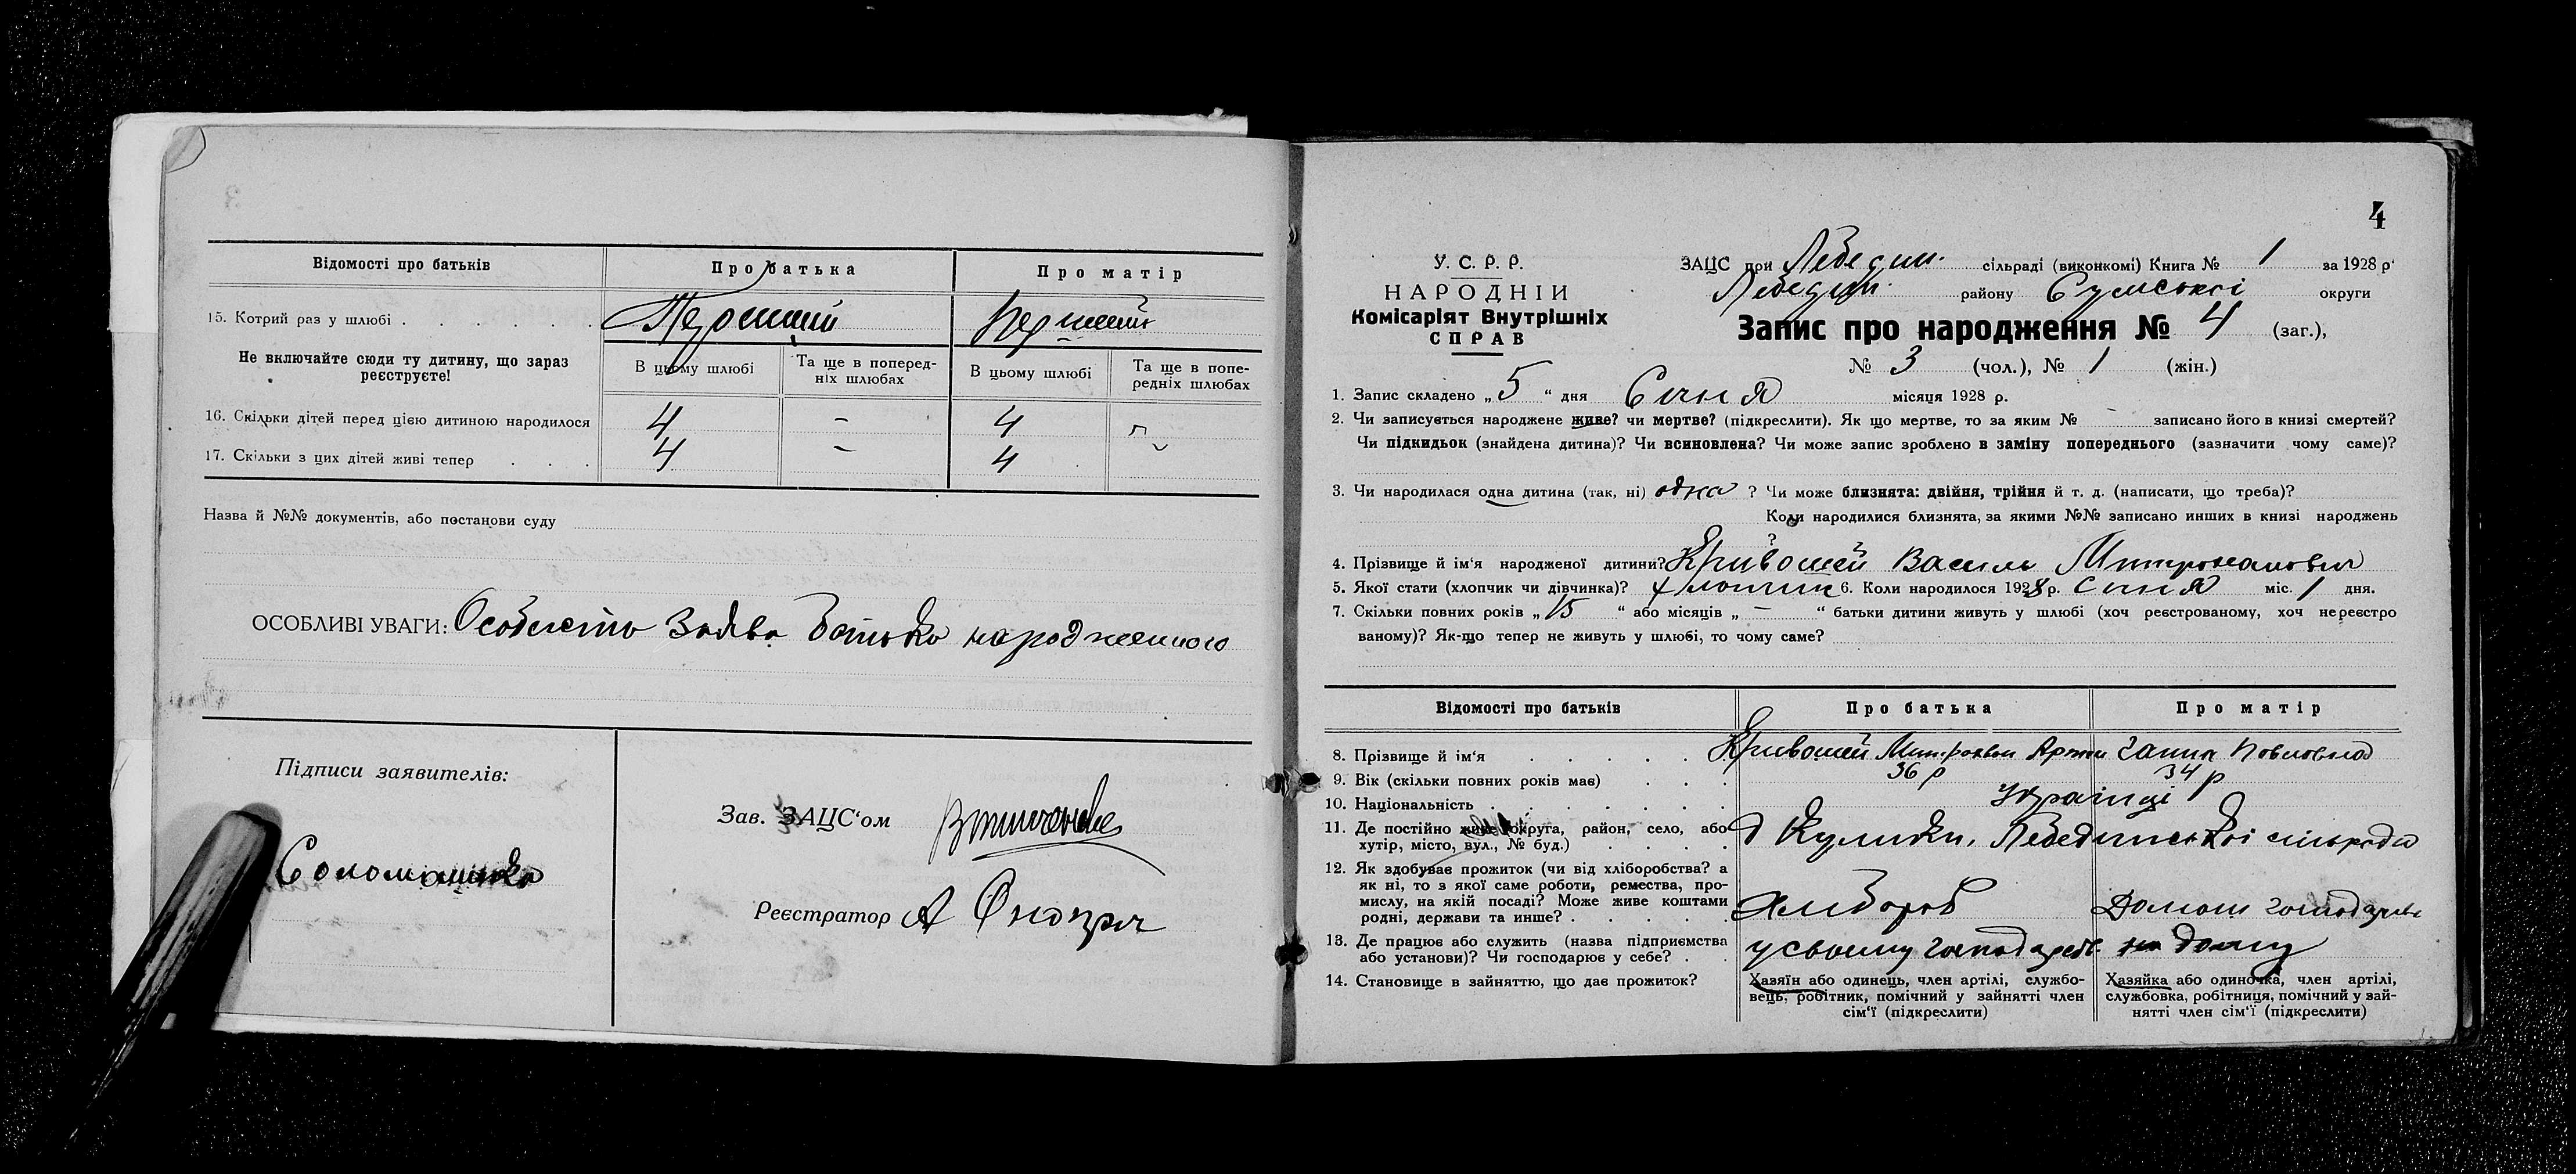 Відомості про батьків Про батька Про матір
15. Котрий раз у шлюбі Перший Перший
Не включайте сюди ту дитину, що зараз реєструєте!
В цьому шлюбі Та ще в попередніх шлюбах В цьому шлюбі Та ще в попередніх шлюбах
16. Скільки дітей перед цією дитиною народилося 4 - 4
17. Скільки з цих дітей живі тепер 4 - 4
Назва й №№ документів, або постанови суду
ОСОБЛИВІ УВАГИ: Особиста заява батька народженного
Підписи заявителів:
Зав. ЗАЦС‘ом
Реєстратор А
4
У. С. Р. Р.
НАРОДНІЙ
Комісаріят Внутрішніх
СПРАВ
ЗАЦС при Лебедин. сільраді (виконкомі) Книга № 1 за 1928 р.
Лебедин. району Сумської округи
Запис про народження № 4 (заг.),
№ 3 (чол.), № 1 (жін.)
1. Запис складено „5“ дня Січня місяця 1928 р.
2. Чи записується народжене живе? чи мертве? (підкреслити). Як що мертве, то за яким № записано його в книзі смертей?
Чи підкидьок (знайдена дитина)? Чи всиновлена? Чи може запис зроблено в заміну попереднього (зазначити чому саме)?
3. Чи народилася одна дитина (так, ні) одна ? Чи може близнята: двійня, трійня й т. д. (написати, що треба)?
Коли народилися близнята, за якими №№ записано инших в книзі народжень
?
4. Прізвище й ім‘я народженої дитини? Кривошей Василь Митрофанович
5. Якої стати (хлопчик чи дівчинка)? хлопчик 6. Коли народилося 1928 р. Січня міс. 1 дня.
7. Скільки повних років „15“ або місяців „-“ батьки дитини живуть у шлюбі (хоч реєстрованому, хоч нереєстро
ваному)? Як-що тепер не живуть у шлюбі, то чому саме?
Відомості про батьків Про батька Про матір
8. Прізвище й ім‘я Кривошей Митрофан Ганна Повловна
9. Вік (скільки повних років має) 36 р 34 р
10. Національність Українці
11. Де постійно живе (округа, район, село, або
хутір, місто, вул., № буд.) Кулики, Лебединської сільради
12. Як здобуває прожиток (чи від хліборобства? а
як ні, то з якої саме роботи, ремества, про-
мислу, на якій посаді? Може живе коштами
родні, держави та инше? Хлібороб Домаш господарств
13. Де працює або служить (назва підприємства
або установи)? Чи господарює у себе? у своєму господарств. дому
14. Становище в зайняттю, що дає прожиток?
Хазяїн або одинець, член артілі, службо-
вець, робітник, помічний у зайнятті член
сім‘ї (підкреслити)
Хазяйка або одиночка, член артілі,
службовка, робітниця, помічний у зай-
нятті член сім‘ї (підкреслити)